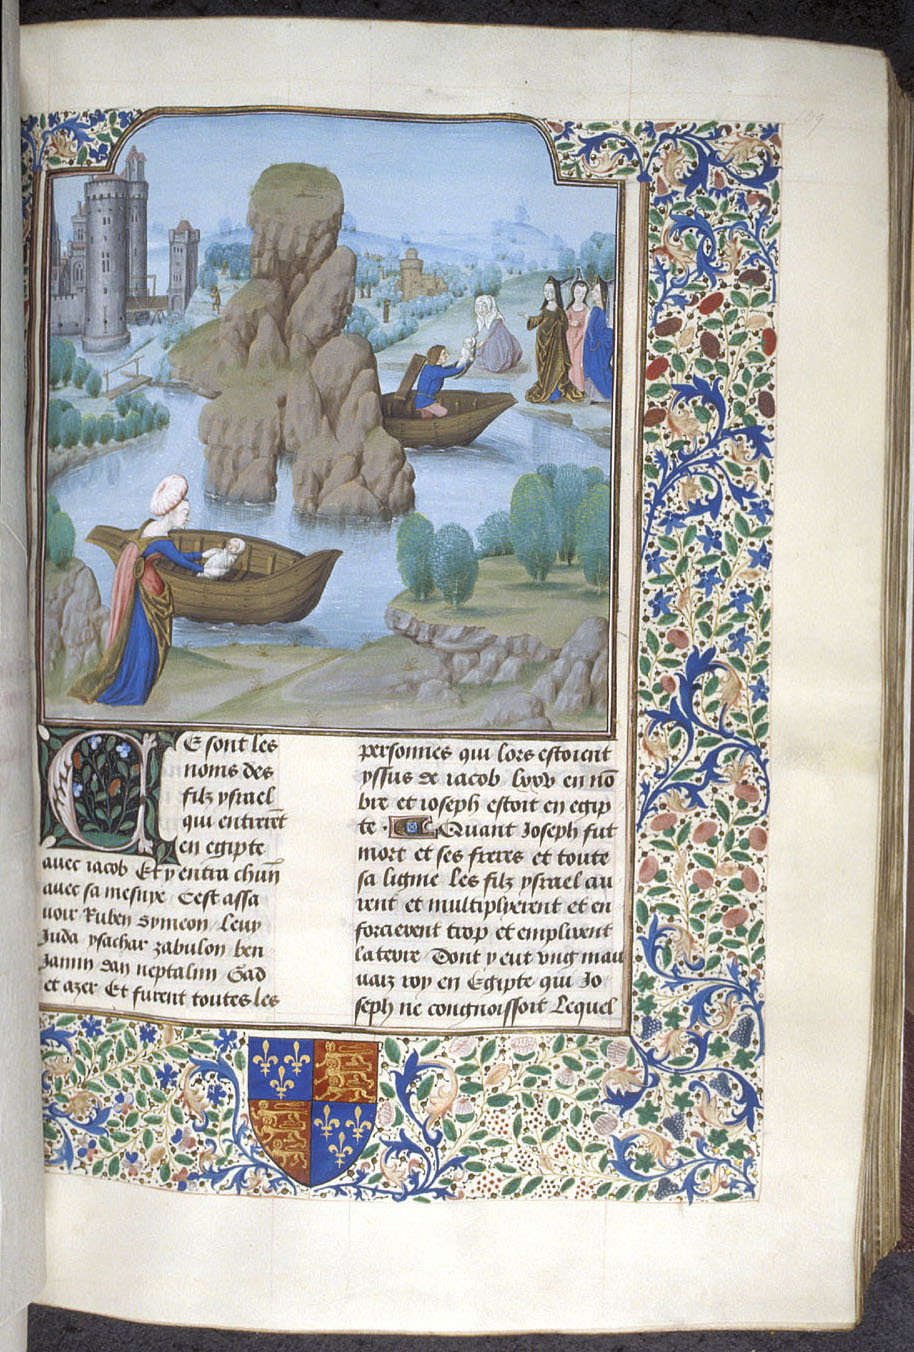 Ce sont les
noms des
filz ysrael
qui entrerēt
en egipte
avec iacob Et y entra chūn
avec sa mesnye Cest assa
uoir Ruben symeon leuy
Juda ysachar zabulon ben
Jamin dan neptalim Gad
et azer Et furent toutes les
personnes qui lors estoient
yssus de iacob lxxv en nō
bre et ioseph estoit en egip
te . Quant Joseph fut
mort et ses freres et toute
sa lignie les filz ysrael au
rent et multiplyerent et en
forcierent trop et emplirent
la terre Dont y eut vng mau
uaiz roy en Egipte qui Jo
seph ne congnoissoit Lequel